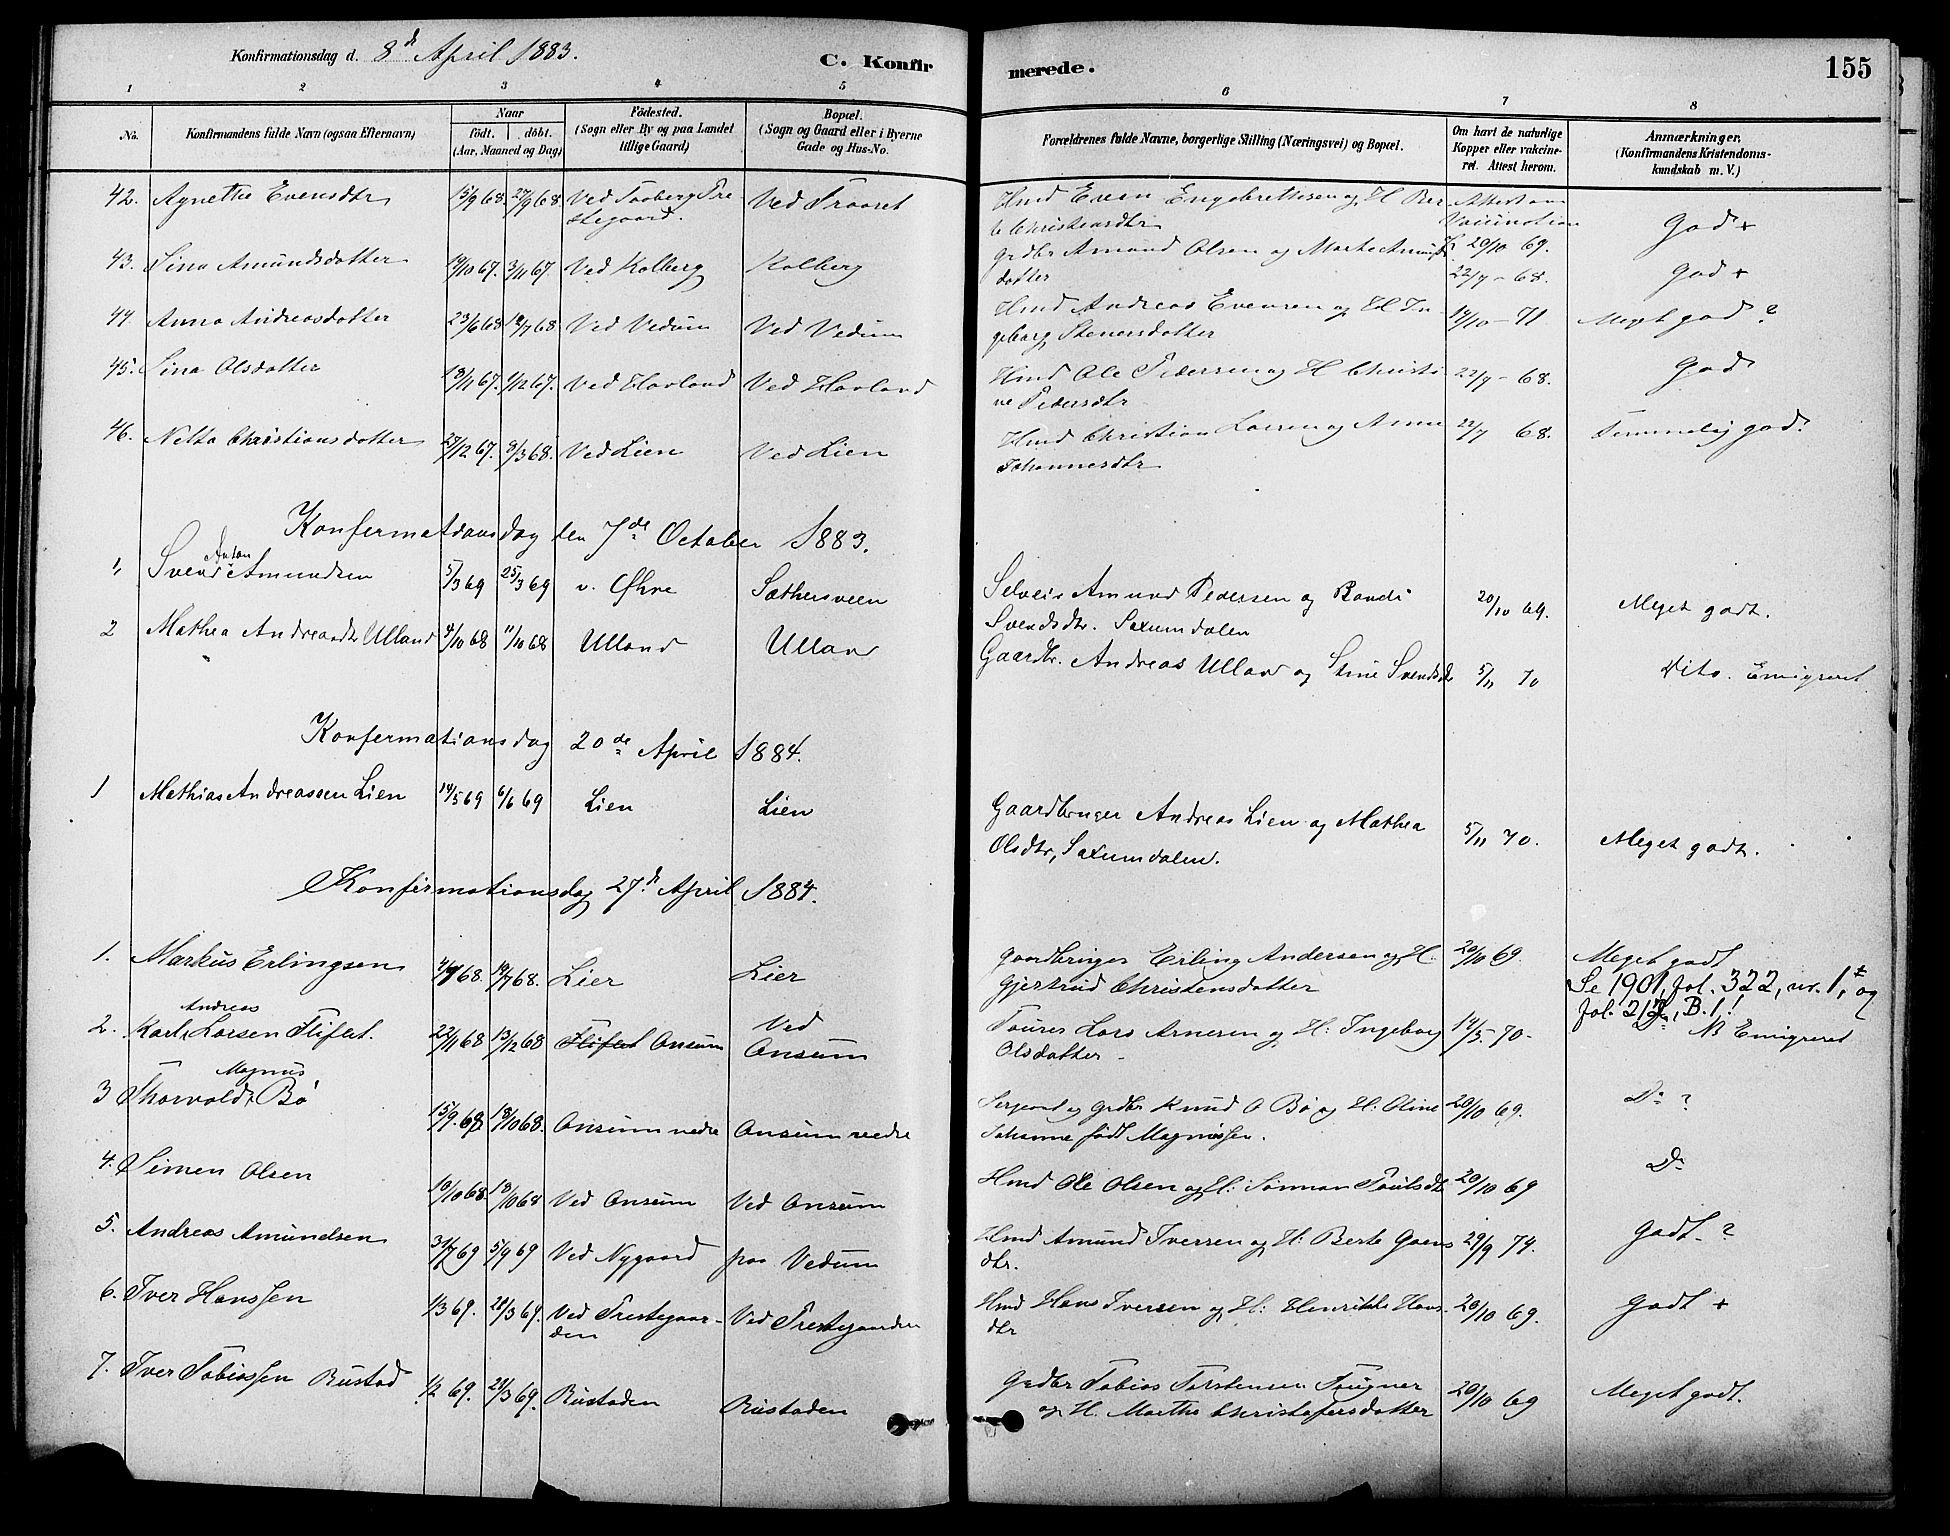 Konfirmationsdag d. 8d April 1883.
C. Konfirmerede.
155
1 2 3 4 5 6 7 8
No.
Konfirmandens fulde Navn (ogsaa Efternavn)
Naar
födt. döbt.
(Aar, Maaned og Dag)
Födested.
(Sogn eller By og paa Landet tillige Gaard)
Bopæl.
(Sogn og Gaard eller i Byerne Gade og Hus-No.
Forældrenes fulde Navne, borgerlige Stilling (Næringsvei) og Bopæl.
Om havt de naturlige Kopper eller vakcineret. Attest herom.
Anmærkninger,
(Konfirmandens Kristendomskundskab m. V.)
42. Agnethe Evensdtr 15/9 68. 27/9 68. Ved Faaberg Prestegaard. Ved Hmd Even Engebrettsen og H. Berte Christensdtr Attest om Vaccination 20/10 69. God +
43. Sina Amundsdatter 14/10 67. 3/11 67. Ved Kolberg Kolberg Grdbr Amund Olsen og Marte Amundsdatter 22/7 - 68. God +
44. Anna Andreasdatter 23/6 68 19/7 68. Ved Vedum Ved Vedum Hmd Andreas Evensen og H Ingeborg Stenersdatter 14/10 - 71 Meget god ?
45. Sina Olsdatter 18/11 67. 1/12 67. Ved Havland Ved Havland Hmd Ole Pedersen og H Christine Pedersdtr 22/7 - 68. God
46. Netta Christiansdatter 27/12 67. 8/3 68. Ved Lien Ved Lien Hmd Christian Larsen og Anne Johannesdtr 22/7 68. Temmelig god?
Konfermationsdag den 7de October 1883.
1, Svend Anton Amundsen 5/3 69 25/3 69 v. Øhre Sathersveen Selveis Amund Pedersen og Randi Svendsdtr. Saxumdalen 20/10 69. Meget godt.
2 Mathea Andreasdtr Ulland 4/10 68 11/10 68 Ulland Ulland Gaardbr. Andreas Ulland og Stine Svendsdtr 5/11 70 Dito. Emigreret
Konfermationsdag 20de April 1884.
1 Mathias Andreassen Lien 14/5 69 6/6 69 Lien Lien Gaardbruger Andreas Lien og Mathea Olsdtr, Saxumdalen. 5/11 70. Meget godt.
Konfirmationsdag 27d April 1884.
1. Markus Erlingsen 4/7 68. 19/7 68. Lier Lier Gaardbruger Erling Andersen og H: Gjertrud Christensdatter 20/10 69. Meget godt
Se 1901, fol. 322, nr. 1, og fol. 212, B. 1!
2. Karl Andreas Larsen Fliflet. 22/11 68 13/12 68 Fliflet Onsum Ved Onsum Lars Arnesen og H: Ingeborg Olsdatter 14/5 - 70 - Do N Emigreret
3 Thorvald Magnus Bö 15/9. 68 18/10 68. Onsum nedre Onsum nedre Sergeant og Grdbr Knud O Bö og H: Oline Johanne född Magnussen. 20/10 69. Do ?
4. Simen Olsen 10/10 68. 18/10 68 Ved Onsum Ved Onsum Hmd Ole Olsen og H: Poulsdtr 20/10 69 Do
5. Andreas Amundsen 31/7 69 5/9 69 Ved Nygaard paa Vedum Hmd Amund Iversen og H: Berte dtr. 29/9 74. Godt. ?
6. Iver Hanssen 1/3 69. 28/3 69. Ved Prestegaarden Ved Prestegaarden Hmd Hans Iversen og H: Henrikke Hansdtr 20/10 69. Godt +
7. Iver Tobiassen Rustad 1/2 69. 21/3 69. Rustaden Rustaden Grdbr Tobias Torstensen Tougner og H. Marthe Christofersdatter 20/10 69 Meget godt.